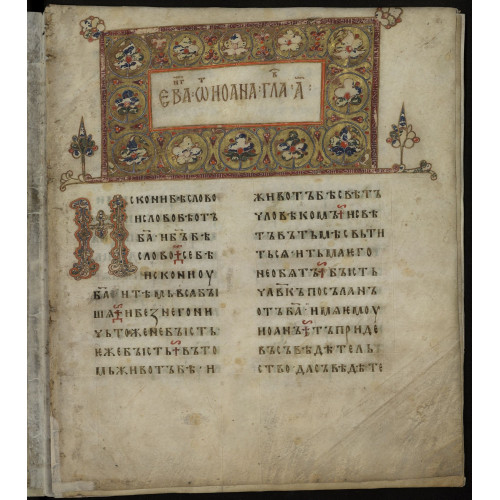 ЕВА҃ · Ѿ ИОАНА · ГЛА · А҃ :
ИСКОНИ БѢ СЛОВО
И СЛОВО БѢ ОТЪ
БА҃ И БЪ҃ БѢ
СЛОВО СЕ БѢ
ИСКОНИ ОУ
БА҃ И ТѢМЬ ВЬСА БЫ
ШѦ И БЕЗ НЕГО НИ
ЧЬТОЖЕ НЕ БЫСТЬ
ИЖЕ БЫСТЬ ВЪ ТО
МЬ ЖИВОТЪ БѢ · И
ЖИВОТЪ БѢ СВѢТЪ
ЧЛОВѢКОМЪ И СВѢ
ТЪ ВЪ ТЬМѢ СВЬТИ
ТЬСѦ · И ТЬМА ЕГО
НЕ ОБѦТЪ БЫСТЬ
ЧЛ҃ВКЪ ПОСЪЛАНЪ
ОТЪ БА҃ · ИМѦ ѤМОУ
ИОАНЪ ТЪ ПРИДЕ
ВЪ СЪВѢДѢТЕЛЬ
СТВО · ДА СЪВѢДѢТЕ